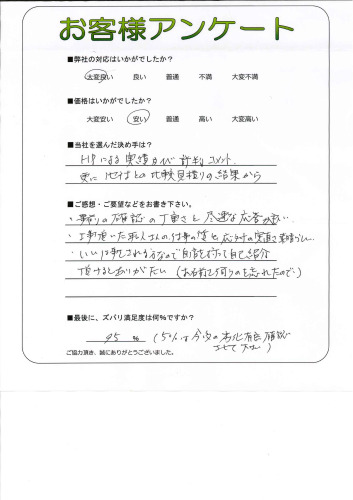 お客様アンケート
■弊社の対応はいかがでしたか？
大変良い 良い 普通 不満 大変不満
■価格はいかがでしたか？
大変安い 安い 普通 高い 大変高い
■当社を選んだ決め手は？
HPによる実績及び評判コメント
更に他社との比較見積りの結果から
■ご感想・ご要望などをお書き下さい。
・見積りの確認の丁寧さと迅速な応答が良い
・工事頂いた職人さんの仕事の質と応対の実直さ素晴らしい
・いい仕事をされる方なので自信を持って自己紹介
頂けるとありがたい（お名前を伺うのを忘れたので）
■最後に、ズバリ満足度は何%ですか？
95 %（5%は今後の劣化有無確認
ご協力頂き、誠にありがとうございました。